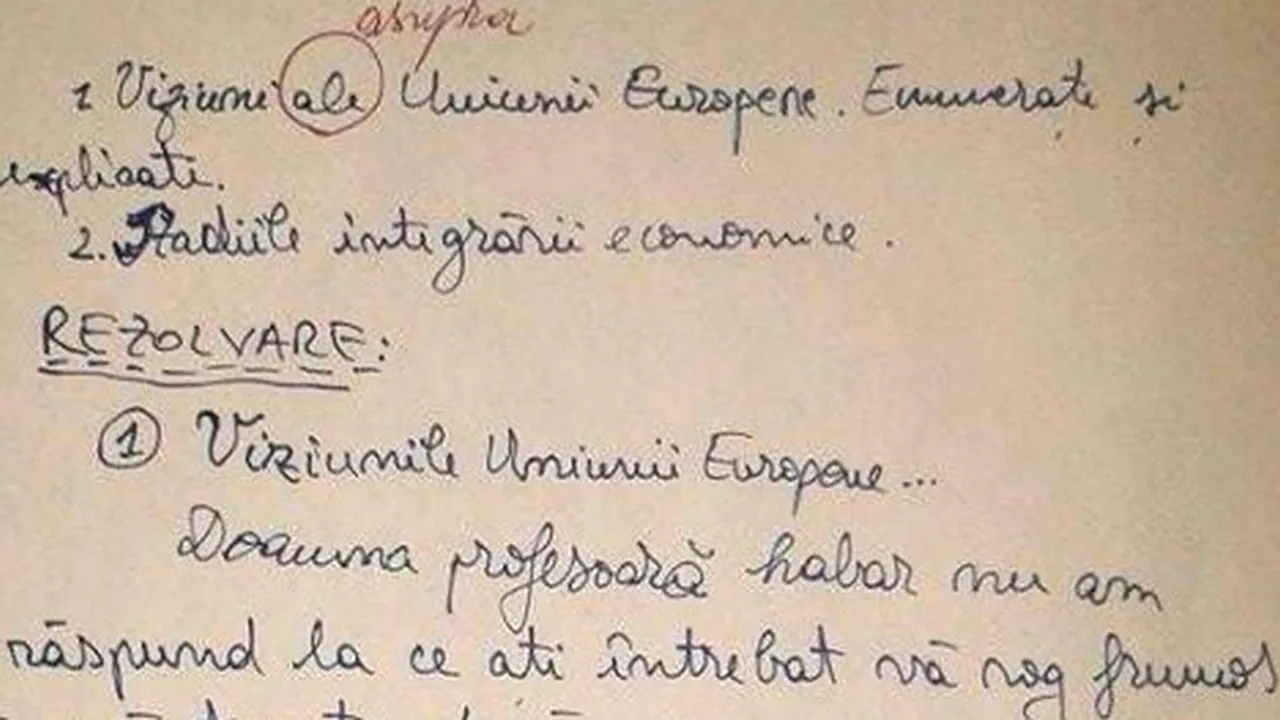 asupra
1 Viziuni ale Uniunii Europene. Enumerați și
explicați.
2. Stadiile integrării economice.
REZOLVARE:
1 Viziunile Uniunii Europene...
Doamna profesoară habar nu am
răspund la ce ati întrebat vă rog frumos